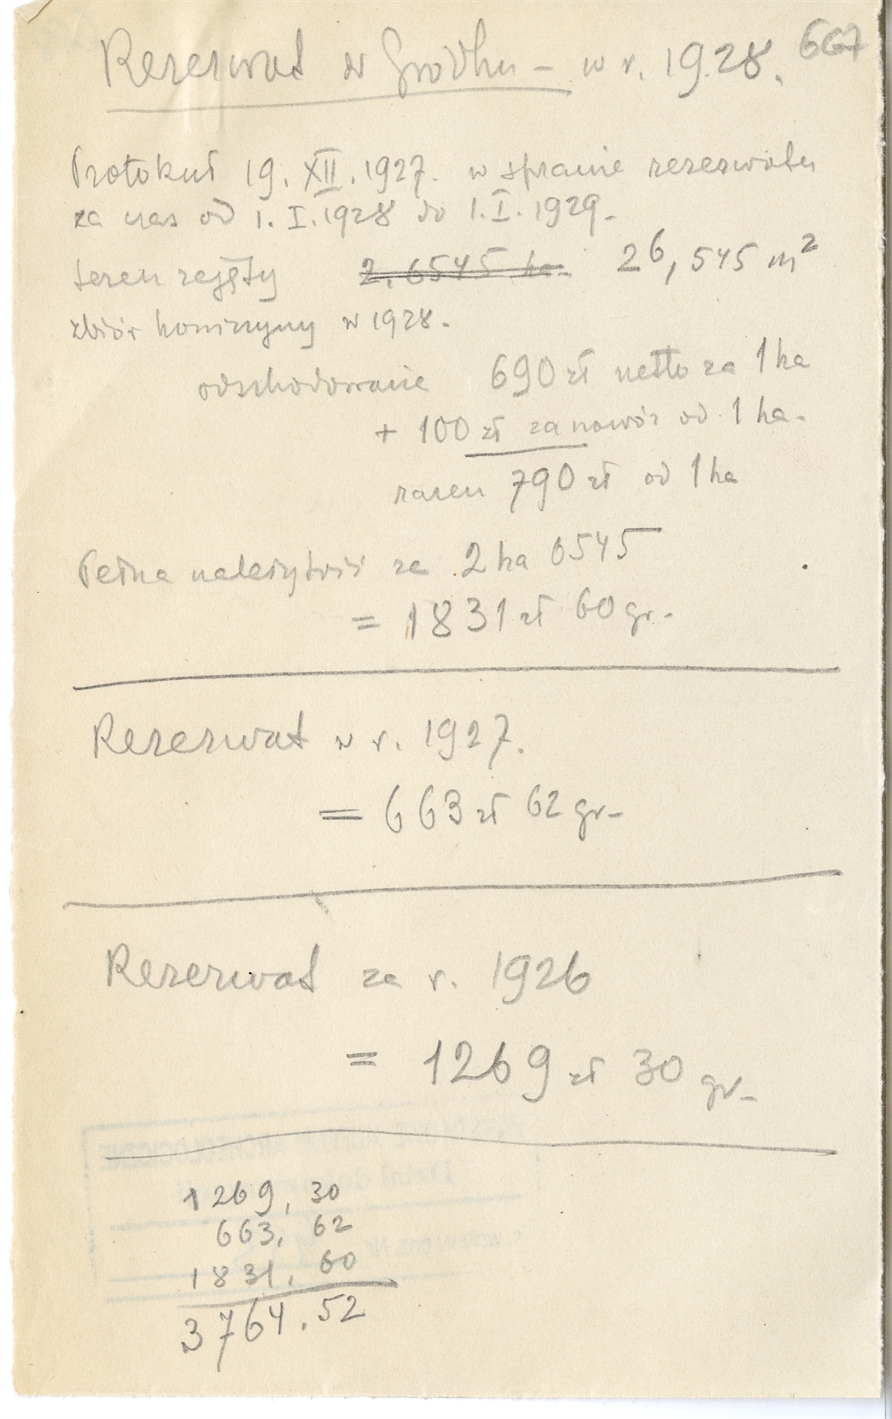 667
Rezerwat w Gródku – w r. 1928.
Protokuł 19. XII. 1927. w sprawie rezerwatu
za czas od 1. I. 1928 do 1. I. 1929.
teren zajęty 2.6545 ha. 26,545 m²
zbiór koniczyny w 1928.
odszkodowanie 690 zł netto za 1 ha
+ 100 zł za nawóz od 1 ha.
razem 790 zł od 1 ha
Pełna należytość za 2 ha 6545
= 1831 zł 60 gr.
Rezerwat w r. 1927.
= 663 zł 62 gr–
Rezerwat za r. 1926
= 1269 zł 30 gr–
1269,30
663,62
1831,60
3764.52